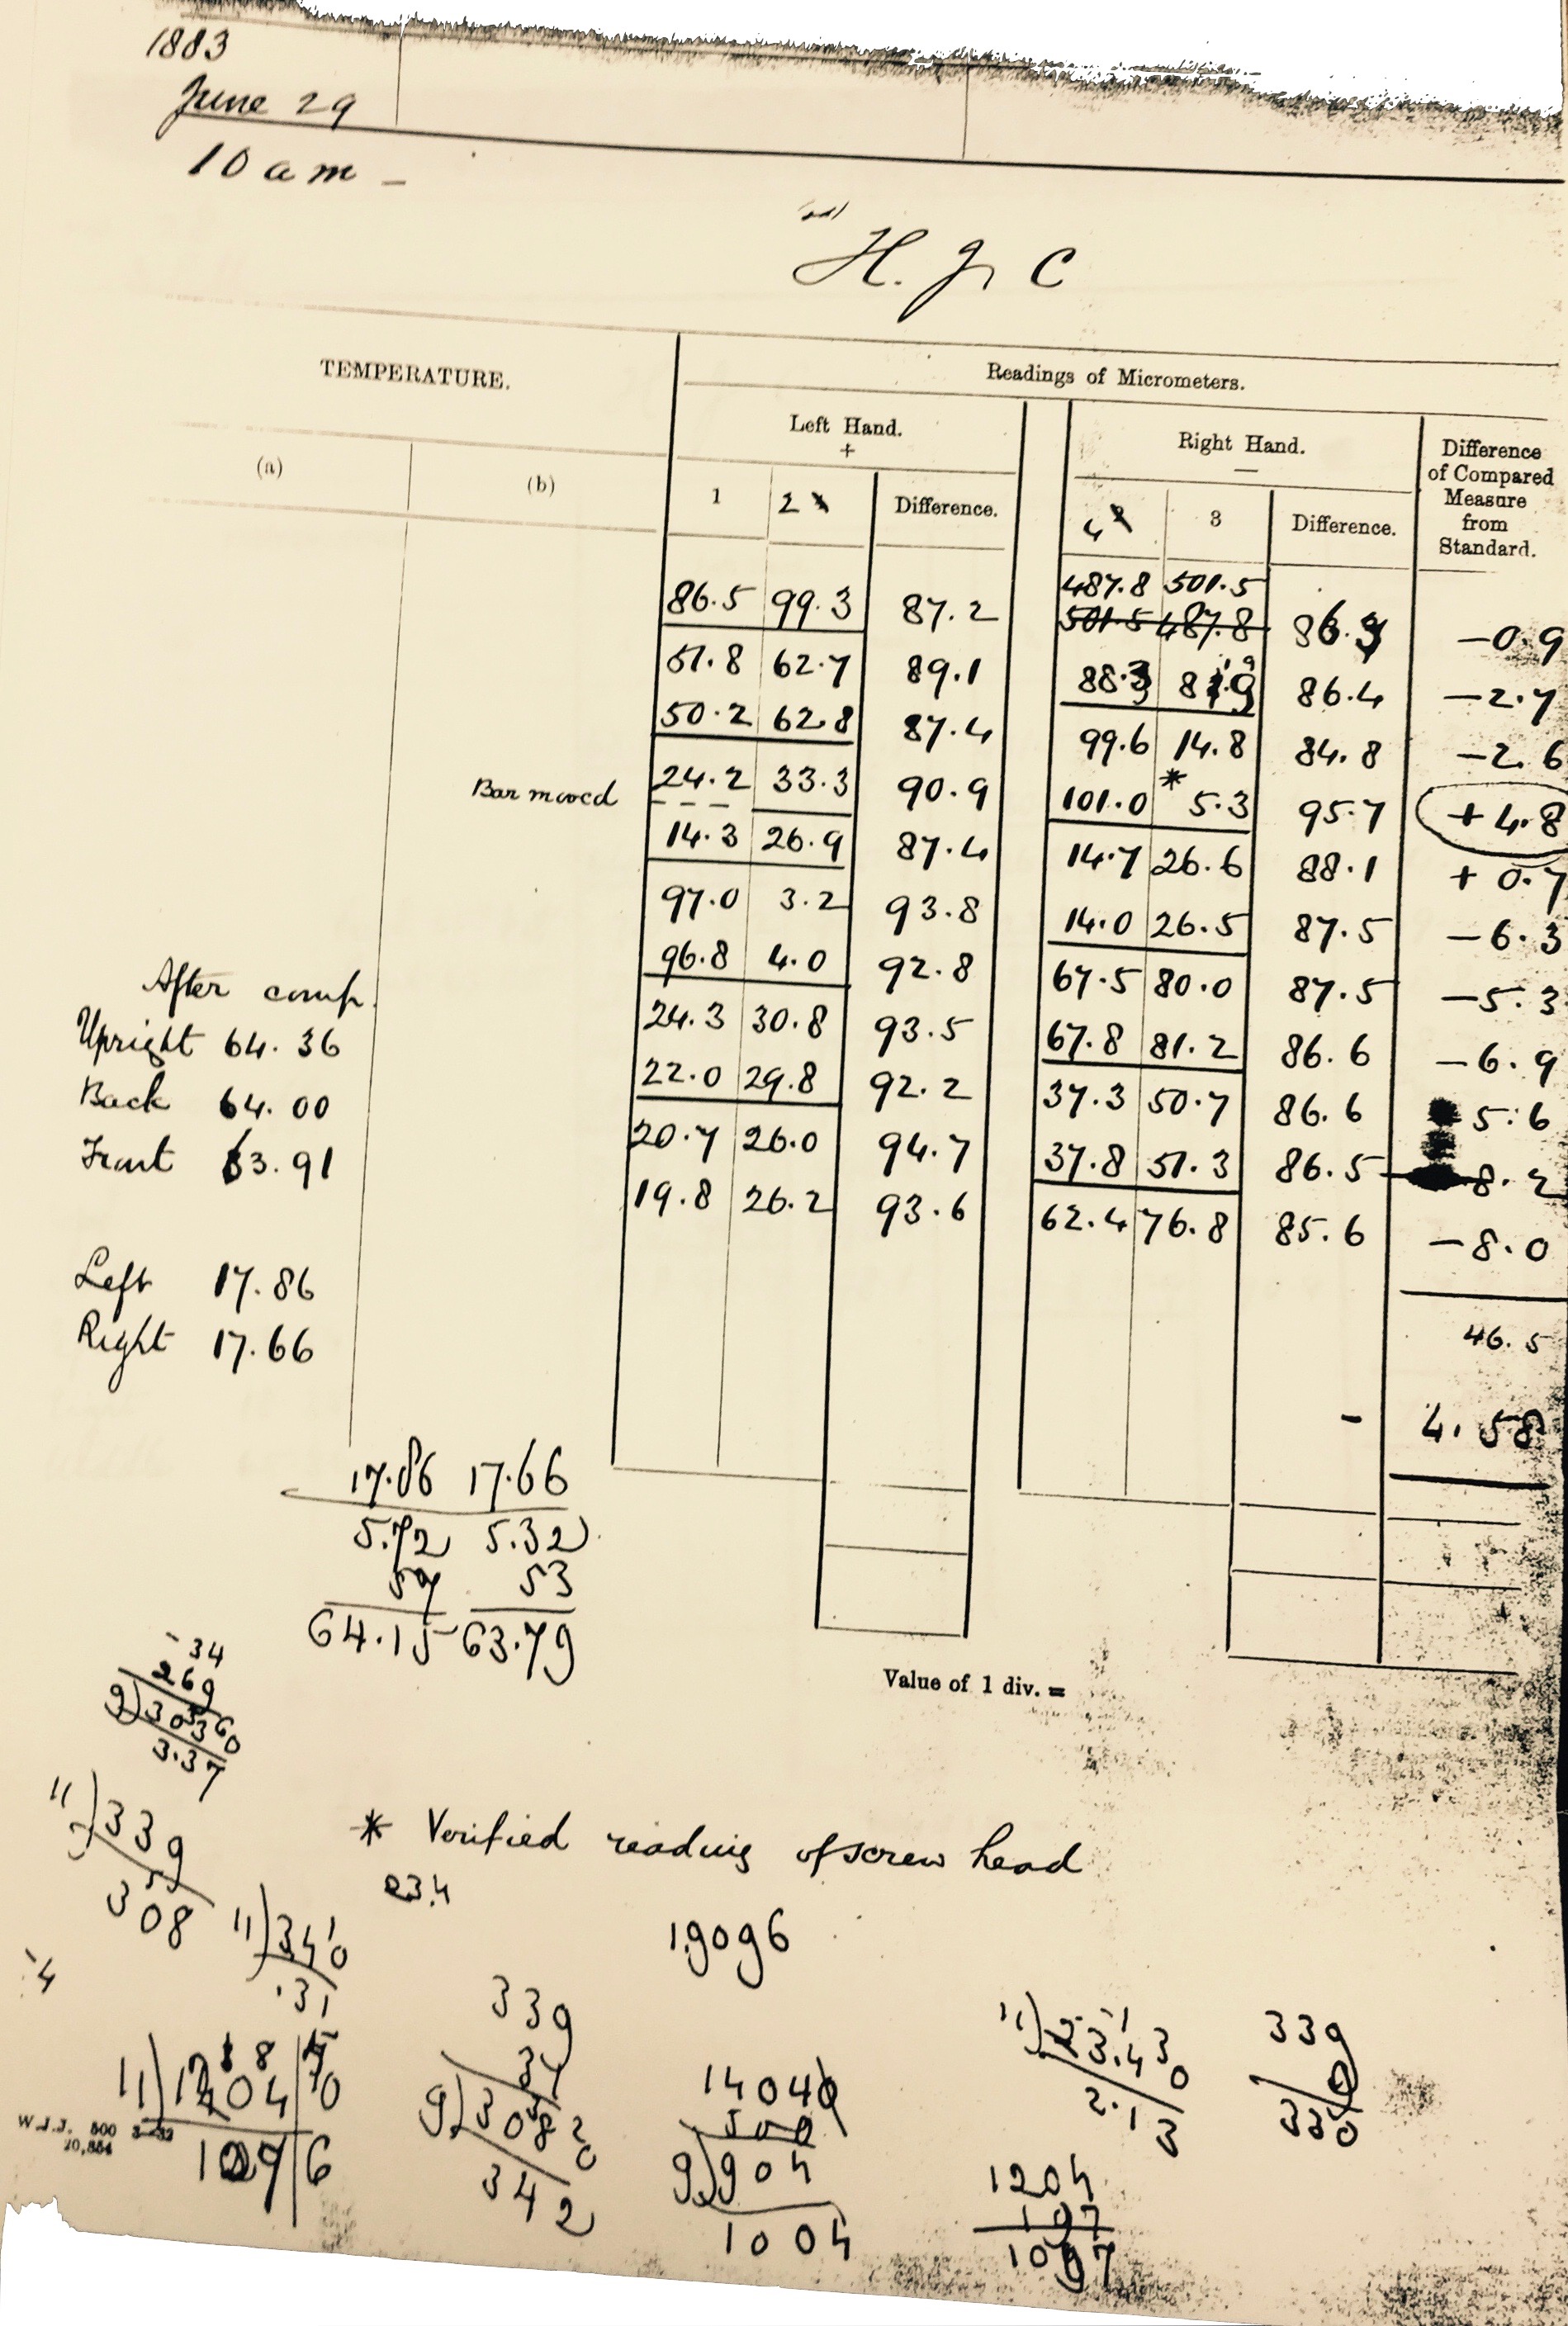 1883
June 29
10 a m -
H. J. C
TEMPERATURE.
Readings of Micrometers.
Left Hand.
+
Right Hand.
—
Difference of Compared Measure from Standard.
(a) (b) 1 2 Difference. 4 3 Difference.
487.8 501.5
86.5 99.3 87.2 501.5 487.8 86.3 -0.9
51.8 62.7 89.1 88.3 81.9 86.4 -2.7
50.2 62.8 87.4 99.6 14.8 84.8 -2.6
Bar moved 24.2 33.3 90.9 101.0 * 5.3 95.7 +4.8
14.3 26.9 87.4 14.7 26.6 88.1 +0.7
97.0 3.2 93.8 14.0 26.5 87.5 -6.3
96.8 4.0 92.8 67.5 80.0 87.5 -5.3
24.3 30.8 93.5 67.8 81.2 86.6 -6.9
22.0 29.8 92.2 37.3 50.7 86.6 5.6
20.7 26.0 94.7 37.8 51.3 86.5 -8.2
19.8 26.2 93.6 62.4 76.8 85.6 -8.0
46.5
- 4.58
After comp.
Upright 64.36
Back 64.00
Front 63.91
Left 17.86
Right 17.66
17.86 17.66
5.72 5.32
57 53
64.15 63.79
Value of 1 div. =
-34
269
9)30360
3.37
11)339
308
11)340
.31
* Verified reading of screw head
23.4
19096
339
34
9)3082
342
14040
500
9)904
1004
11)23.430
2.13
339
330
1204
107
1097
W.J.J. 500 3—32
10,854